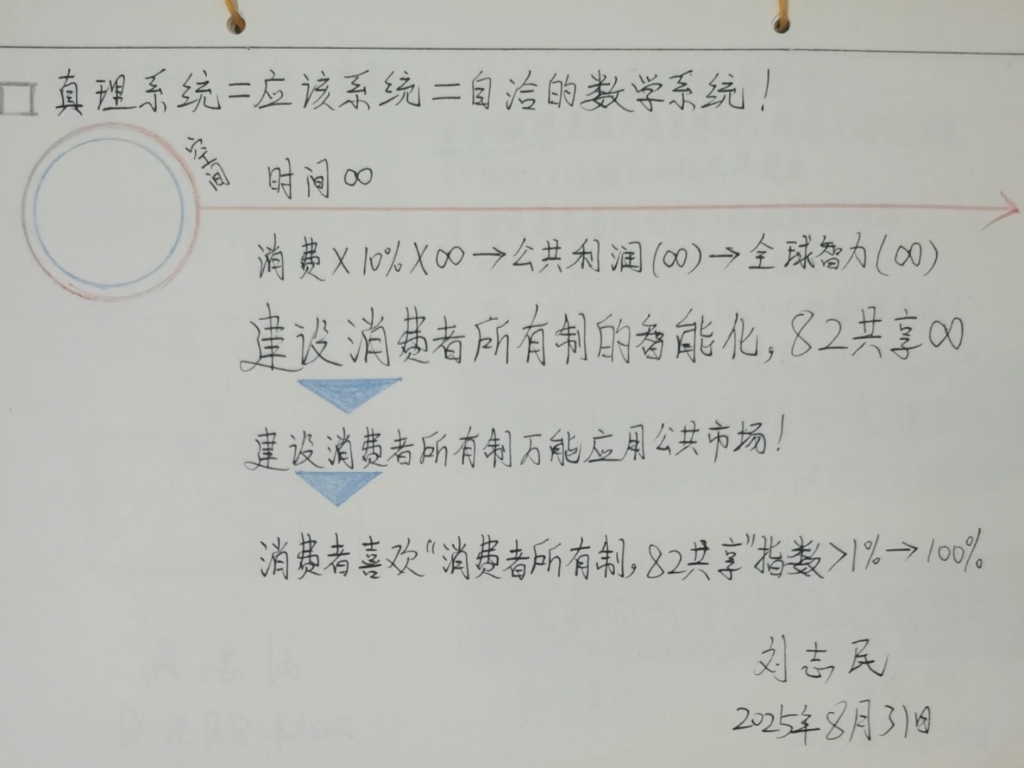 真理系统=应该系统=自洽的数学系统!
空间
时间∞
消费×10%×∞→公共利润(∞)→全球智力(∞)
建设消费者所有制的智能化,82共享∞
建设消费者所有制万能应用公共市场!
消费者喜欢“消费者所有制,82共享”指数>1%→100%
刘志民
2025年8月31日